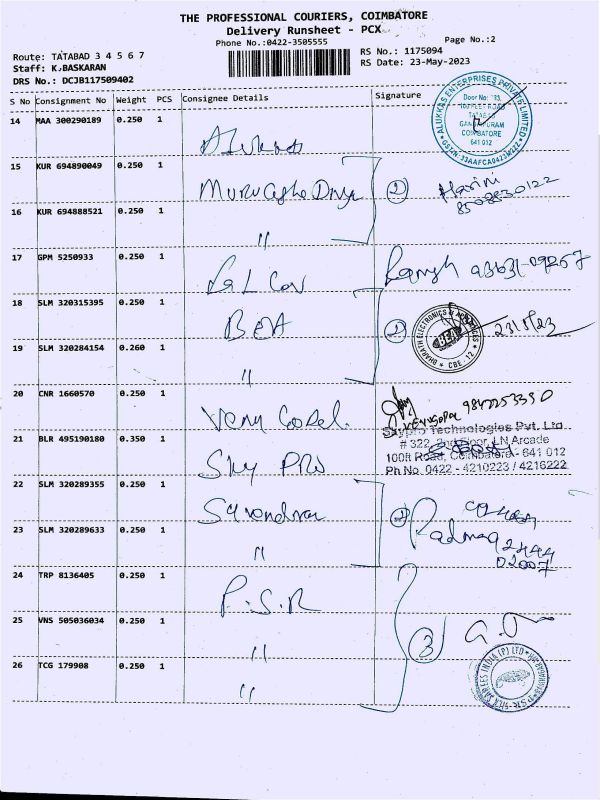 THE PROFESSIONAL COURIERS, COIMBATORE
Delivery Runsheet - PCX
Phone No.:0422-3505555
Page No.:2
Route: TATABAD 3 4 5 6 7
RS No.: 1175094
Staff: K.BASKARAN
RS Date: 23-May-2023
DRS No.: DCJB117509402
S No Consignment No Weight PCS Consignee Details Signature
14 MAA 300290189 0.250 1
ALUKKAS ENTERPRISES PRIVATE LIMITED
COIMBATORE
641 012
15 KUR 694890049 0.250 1
2 Harini
8508830122
16 KUR 694888521 0.250 1
"
17 GPM 5250933 0.250 1
93631-09267
18 SLM 320315395 0.250 1
BEA
BHARATH ELECTRONICS
BEA
CBE - 12
23/5/23
19 SLM 320284154 0.260 1
"
20 CNR 1660570 0.250 1
VENUGOPAL 9842253390
21 BLR 495190180 0.350 1
Sky Pro
Skypro Technologies Pvt. Ltd.
# 322, 2nd Floor, LN Arcade
100ft Road, Coimbatore - 641 012
Ph No. 0422 - 4210223 / 4216222
22 SLM 320289355 0.250 1
23 SLM 320289633 0.250 1
"
24 TRP 8136405 0.250 1
P.S.R
25 VNS 505036034 0.250 1
"
3
26 TCG 179908 0.250 1
"